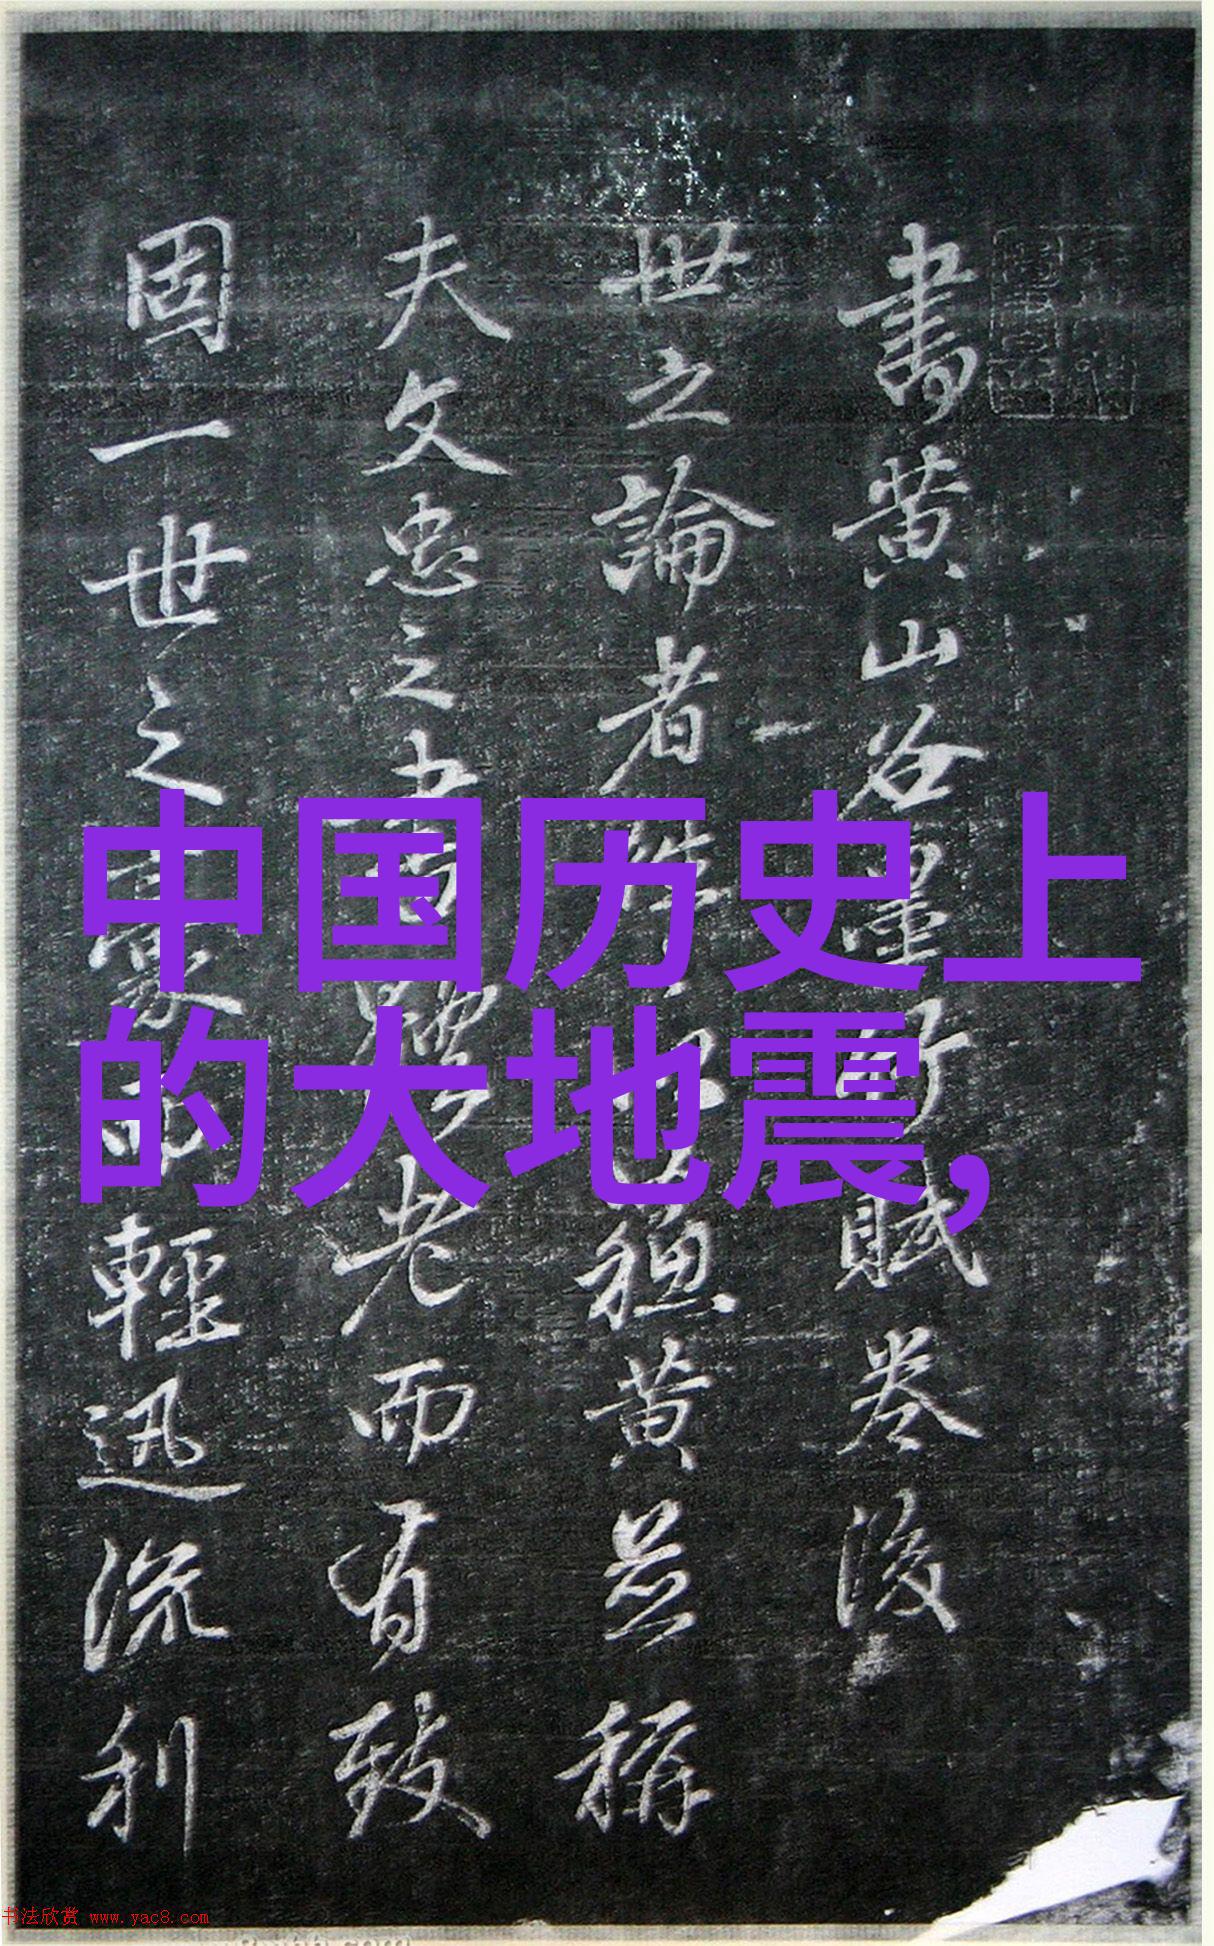 中国历史上
的大地震,
書黄山谷墨竹賦卷後
世之論者黄並稱
夫文忠之書老而有致
固一世之豪而輕迅流利
书法欣赏 www.yac8.com